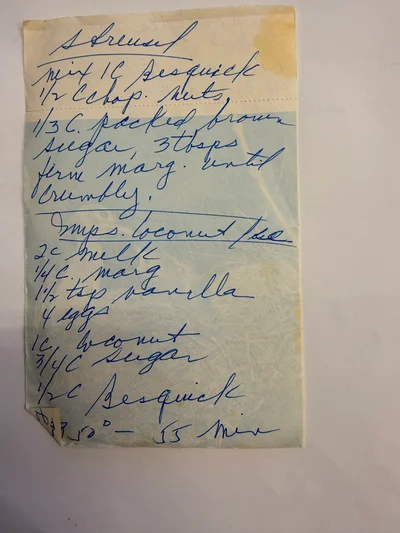 Streusel
mix 1 C Besquick
1/2 C chop. nuts,
1/3 C. packed brown
sugar, 3 tbsps
firm marg. until
crumbly.
Imps. Coconut Pie
2c milk
1/4 C. marg
1 1/2 tsp vanilla
4 eggs
1C. coconut
3/4 C sugar
1/2 C Besquick
350° - 55 min